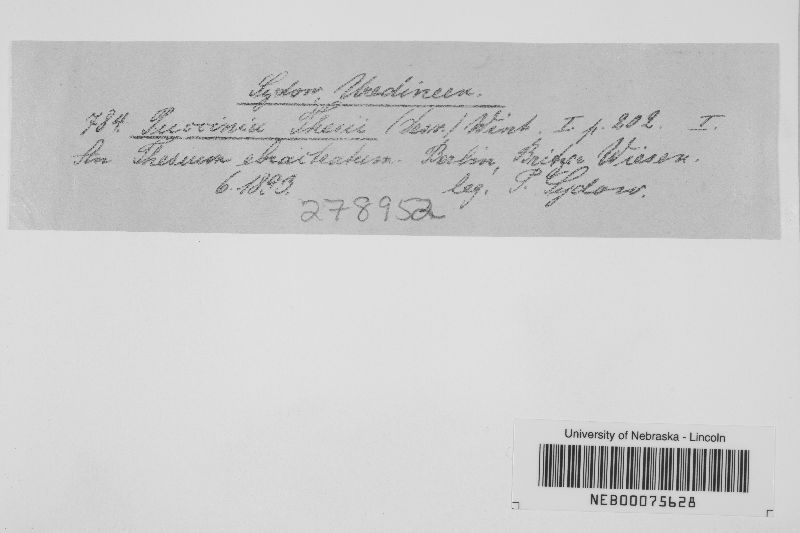 Sydow, Uredineen.
784. Puccinia Thesii (Desv.) Wint. I. p. 202. I.
An Thesium ebracteatum. Berlin, Britzer Wiesen.
6. 1893. leg. P. Sydow.
278952
University of Nebraska - Lincoln
NEB00075628